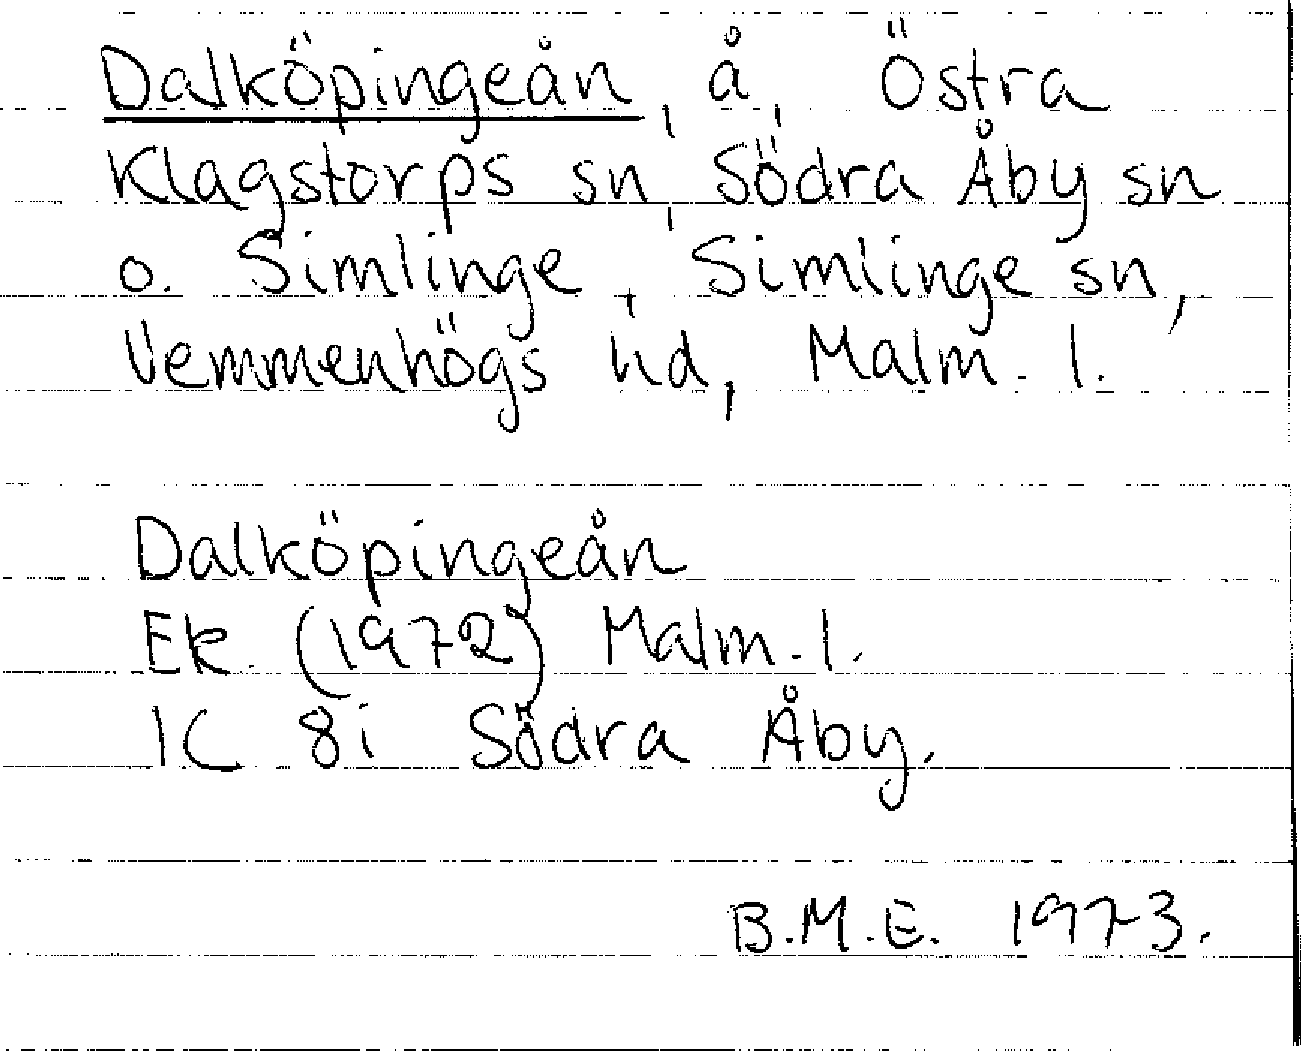 Dalköpingeån, å, Östra
Klagstorps sn, Södra Åby sn
o. Simlinge, Simlinge sn,
Vemmenhögs hd, Malm. l.
Dalköpingeån
Ek. (1972) Malm. l.
1C 8i Södra Åby.
B.M.E. 1973.